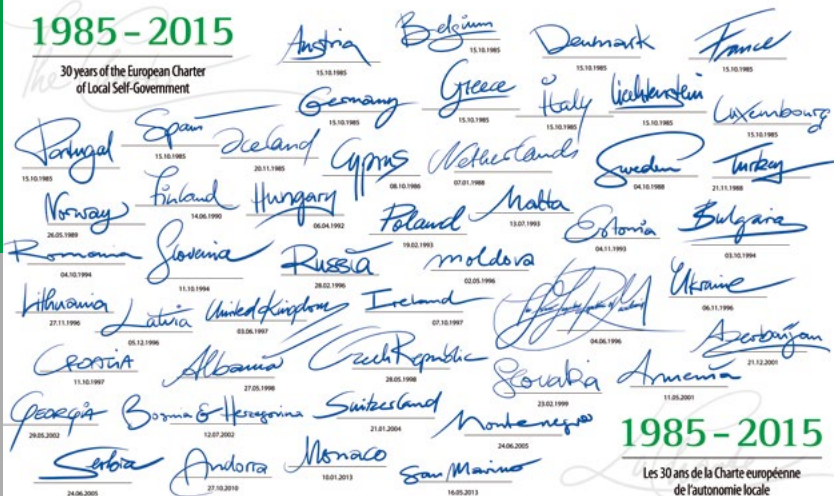 1985 - 2015
30 years of the European Charter
of Local Self-Government
Austria
15.10.1985
Belgium
15.10.1985
Denmark
15.10.1985
France
15.10.1985
Germany
15.10.1985
Greece
15.10.1985
Italy
15.10.1985
Liechtenstein
15.10.1985
Luxembourg
15.10.1985
Portugal
15.10.1985
Spain
15.10.1985
Iceland
20.11.1985
Cyprus
08.10.1986
Netherlands
07.01.1988
Sweden
04.10.1988
Turkey
21.11.1988
Norway
26.05.1989
Finland
14.06.1990
Hungary
06.04.1992
Poland
19.02.1993
Malta
13.07.1993
Estonia
04.11.1993
Bulgaria
03.10.1994
Romania
04.10.1994
Slovenia
11.10.1994
Russia
28.02.1996
Moldova
02.05.1996
04.06.1996
Ukraine
06.11.1996
Lithuania
27.11.1996
Latvia
05.12.1996
United Kingdom
03.06.1997
Ireland
07.10.1997
Croatia
11.10.1997
Albania
27.05.1998
Czech Republic
28.05.1998
Slovakia
23.02.1999
Armenia
11.05.2001
Azerbaijan
21.12.2001
Georgia
29.05.2002
Bosnia & Herzegovina
12.07.2002
Switzerland
21.01.2004
Montenegro
24.06.2005
Serbia
24.06.2005
Andorra
27.10.2010
Monaco
10.01.2013
San Marino
16.05.2013
1985 - 2015
Les 30 ans de la Charte européenne
de l'autonomie locale